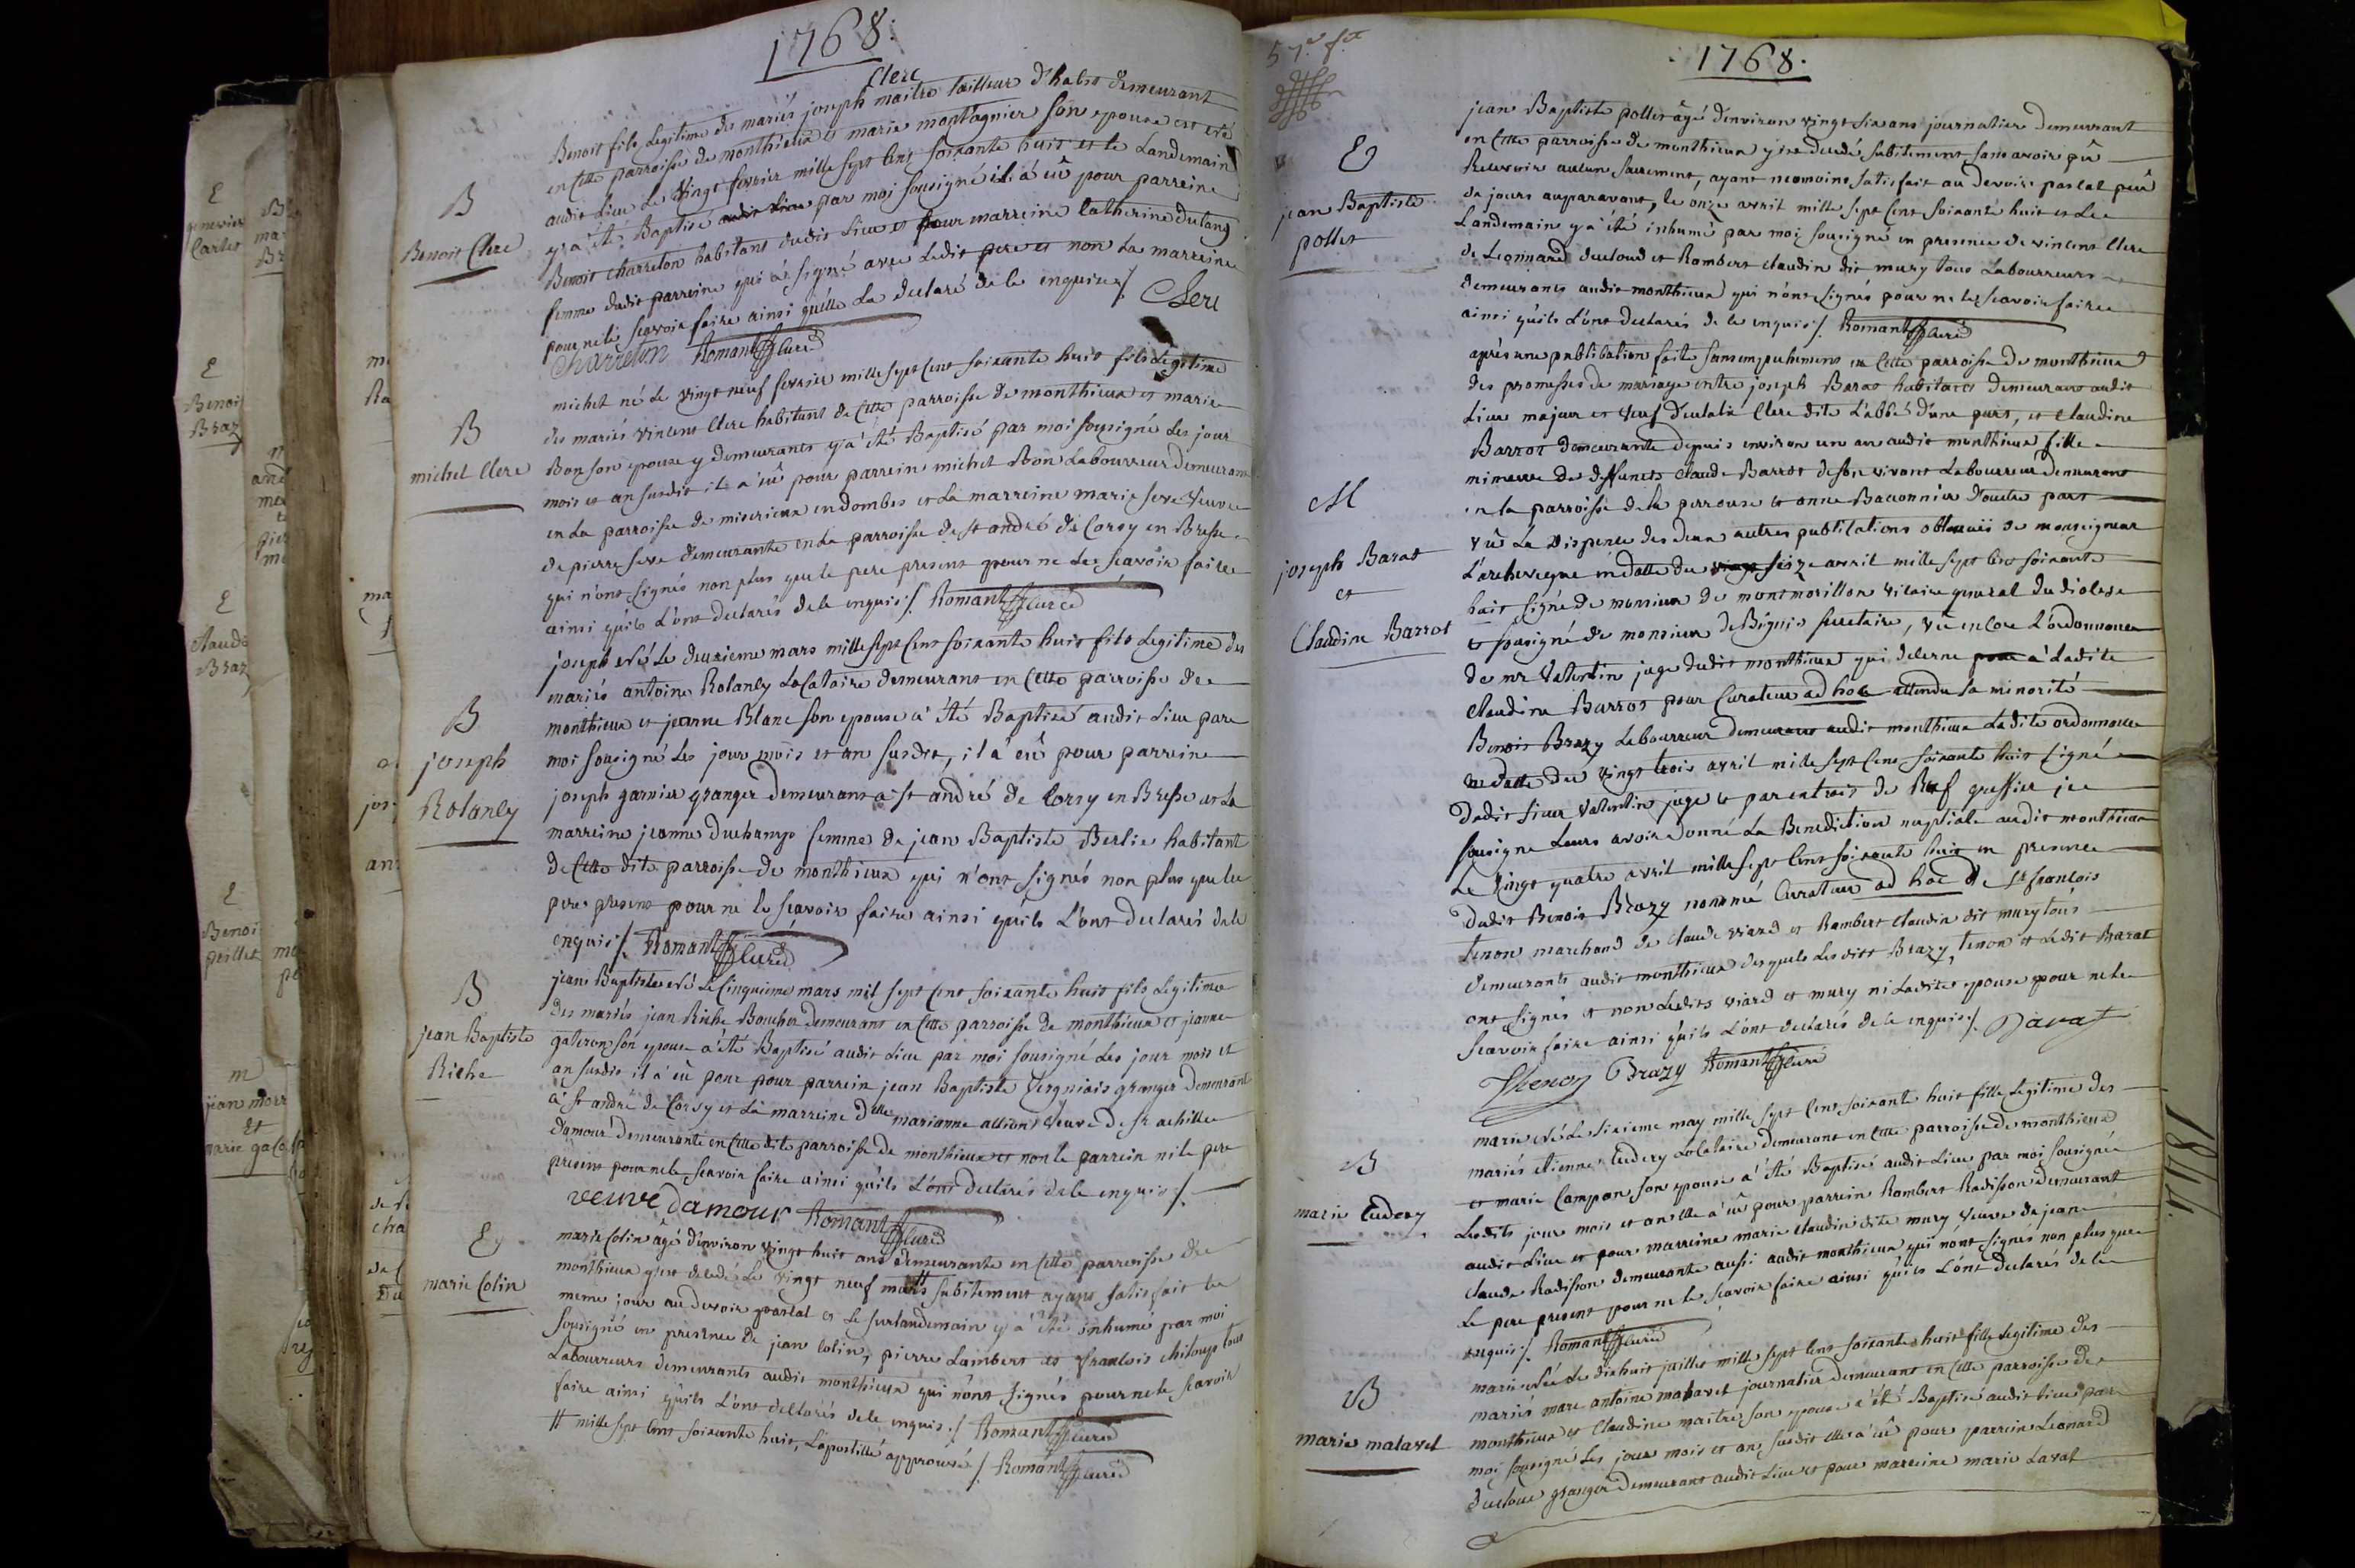 1768.
B
Benoit Clerc
Clerc
Benoit fils legitime des mariés joseph maitre tailleur d'habit demeurant
en cette parroisse de monthieux et marie montagnier son epouse est né
audit lieu le vingt fevrier mille sept cent soixante huit et le landemain
y a été Baptisé audit lieu par moi sousigné il a eû pour parreine
Benoit charreton habitant dudit lieu et pour marreine Catherine dutang
femme dudit parreine qui a signé avec ledit pere et non la marreine
pour ne le sçavoir faire ainsi qu'elle la declaré de ce enquise ./. Clerc
Charreton Romant curé
B
michel Clerc
michel né le vingt neuf fevrier mille sept cent soixante huit fils legitime
des mariés vincent Clerc habitant de cette parroisse de monthieux et marie
Bon son epouse y demeurants y a été Baptisé par moi sousigné les jour
mois et an susdit il a eû pour parrein michel Bon Labourreur demeurant
en la parroisse de miserieux en dombes et la marreine marie seve veuve
de pierre seve demeurante en la parroisse de st andré de Corsy en Bresse
qui n'ont signés non plus que le pere present pour ne le sçavoir faire
ainsi qu'ils l'ont declarés de ce enquis ./. Romant curé
B
joseph
Rolanly
joseph né le deuxieme mars mille sept cent soixante huit fils legitime des
mariés antoine Rolanly locataire demeurant en cette parroisse de
monthieux et jeanne Blanc son epouse a été Baptisé audit lieu par
moi sousigné les jour mois et an susdit, il a eû pour parreine
joseph garnier granger demeurant a st andré de Corsy en Bresse et la
marreine jeanne duchamp femme de jean Baptiste Berlie habitant
de cette dite parroisse de monthieux qui n'ont signés non plus que le
pere present pour ne le sçavoir faire ainsi qu'ils l'ont declarés de ce
enquis ./. Romant curé
B
jean Baptiste
Riche
jean Baptiste né le Cinquieme mars mil sept cent soixante huit fils legitime
des mariés jean Riche Boucher demeurant en cette parroisse de monthieux et jeanne
galeron son epouse a été Baptisé audit lieu par moi sousigné les jour mois et
an susdit il a eû pour pour parrein jean Baptiste Vergniais granger demeurant
a st andré de Corsy et la marreine dlle marianne alliont veuve de sr achille
damour demeurante en cette dite parroisse de monthieux et non le parrein ni le pere
present pour ne le sçavoir faire ainsi qu'ils l'ont declarés de ce enquis ./.
veuve damour Romant curé
E
marie Colin
marie Colin âgé d'environ vingt huit ans demeurante en cette parroisse de
monthieux y est decedé le vingt neuf mars # subitement ayant satisfait le
meme jour au devoir pascal et le surlandemain y a été inhumé par moi
sousigné en presence de jean Colin, pierre Lambert et françois chiloup tous
Labourreurs demeurants audit monthieux qui n'ont signés pour ne le sçavoir
faire ainsi qu'ils l'ont declarés de ce enquis ./. Romant curé
# mille sept cent soixante huit, l'apostille approuvé ./. Romant curé
1768.
E
jean Baptiste
pollet
jean Baptiste pollet âgé d'environ vingt six ans journalier demeurant
en cette parroisse de monthieux y est decedé subitement sans avoir pû
Recevoir aucun sacrement, ayant neomoins satisfait au devoir pascal peû
de jours auparavant, le onze avril mille sept cent soixante huit et le
Landemain y a été inhumé par moi sousigné en presence de vincent Clerc
de Leonnard ducloud et Rambert claudin dit mury tous Labourreurs
demeurants audit monthieux qui n'ont signés pour ne le sçavoir faire
ainsi qu'ils l'ont declarés de ce enquis ./. Romant curé
M
joseph Barat
et
Claudine Barrot
après une publication faite sans empechement en cette parroisse de monthieux
des promesses de mariage entre joseph Barat habitant demeurant audit
lieu majeur et veuf d'eulalie Clerc dite l'abbé d'une part, et Claudine
Barrot demeurante depuis environ un an audit monthieux fille
mineure de deffunts Claude Barrot de son vivant Labourreur demeurant
en la parroisse de la perrouse et anne Baconnier d'autre part
vû la dispense des deux autres publications obtenuë de monseigneur
L'archevêque en datte du vingt seize avril mille sept cent soixante
huit signé de monsieur de montmorillon vicaire general du diocese
et sousigné de monsieur de Biguis secretaire, vû encore l'ordonnance
de mr Valentin juge dudit monthieux qui decerne pour a Ladite
Claudine Barrot pour Curateur ad hoc attendu sa minorité
Benoit Brazy Labourreur demeurant audit monthieux Ladite ordonnance
en datte du vingt trois avril mille sept cent soixante huit signé
dudit sieur Valentin juge et par extrait de Ruf greffier je
sousigné leurs avoir donné la Benediction nuptiale audit monthieux
Le vingt quatre avril mille sept cent soixante huit en presence
dudit Benoit Brazy nommé Curateur ad hoc de sr francois
tenon marchand de Claude viard et Rambert Claudin dit mury tous
demeurants audit monthieux desquels lesdits Brazy, tenon et ledit Barat
ont signés et non lesdits viard et mury ni Ladite epouse pour ne le
sçavoir faire ainsi qu'ils l'ont declarés de ce enquis ./. Barat
Thenon Brazy Romant curé
B
marie Cudery
marie née le sixieme may mille sept cent soixante huit fille legitime des
mariés etienne Cudery Locataire demeurant en cette parroisse de monthieux
et marie Campan son epouse a été Baptisé audit lieu par moi sousigné
Lesdits jour mois et an elle a eû pour parrein Rambert Radisson demeurant
audit lieu et pour marreine marie claudin dite mury veuve de jean
claude Radisson demeurante aussi audit monthieux qui n'ont signés non plus que
le pere present pour ne le sçavoir faire ainsi qu'ils l'ont declarés de ce
enquis ./. Romant curé
B
marie malavel
marie née le dixhuit juillet mille sept cent soixante huit fille legitime des
mariés marc antoine malavel journalier demeurant en cette parroisse de
monthieux et Claudine maitre son epouse a été Baptisé audit lieu par
moi sousigné les jour mois et an susdit elle a eû pour parrein Leonard
ducloux granger demeurant audit lieu et pour marreine marie Laval